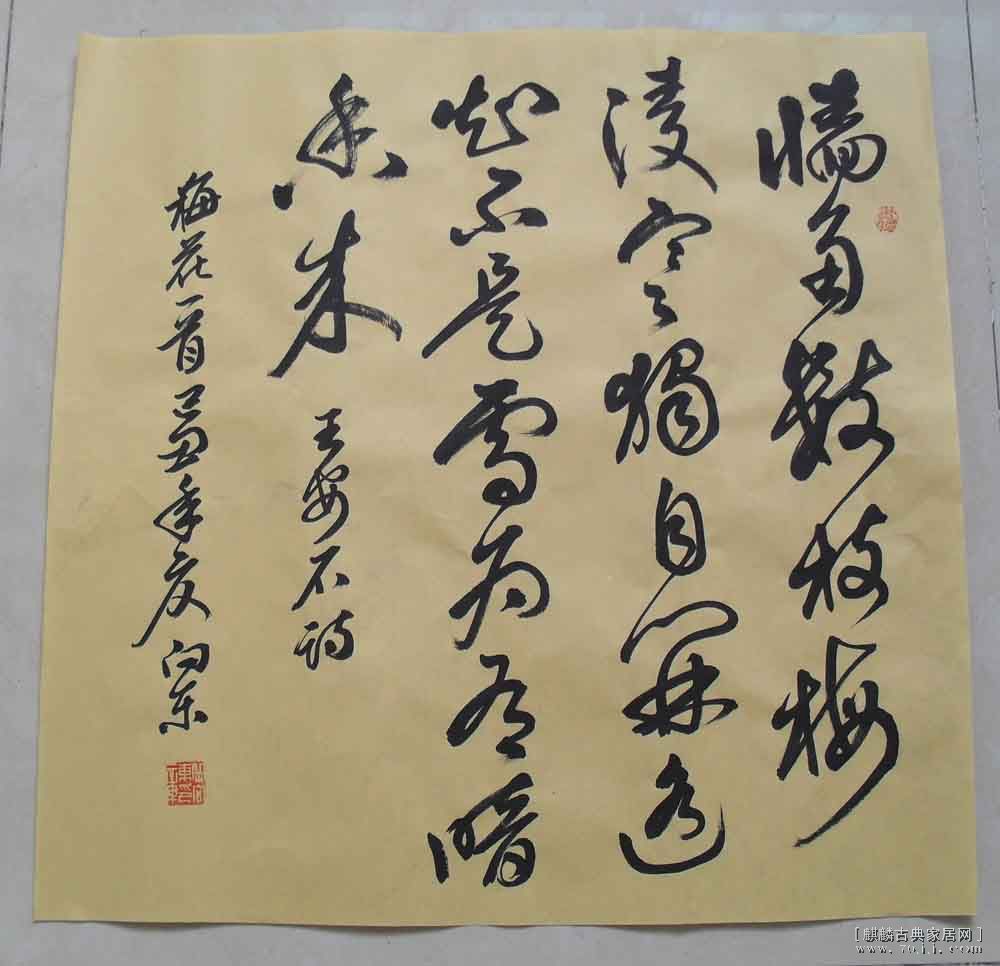 牆角數枝梅
凌寒獨自開遥
知不是雪為有暗
香来 王安石詩
梅花一首 己丑年夏 向东
[麒麟古典家居网]
www.7011.com